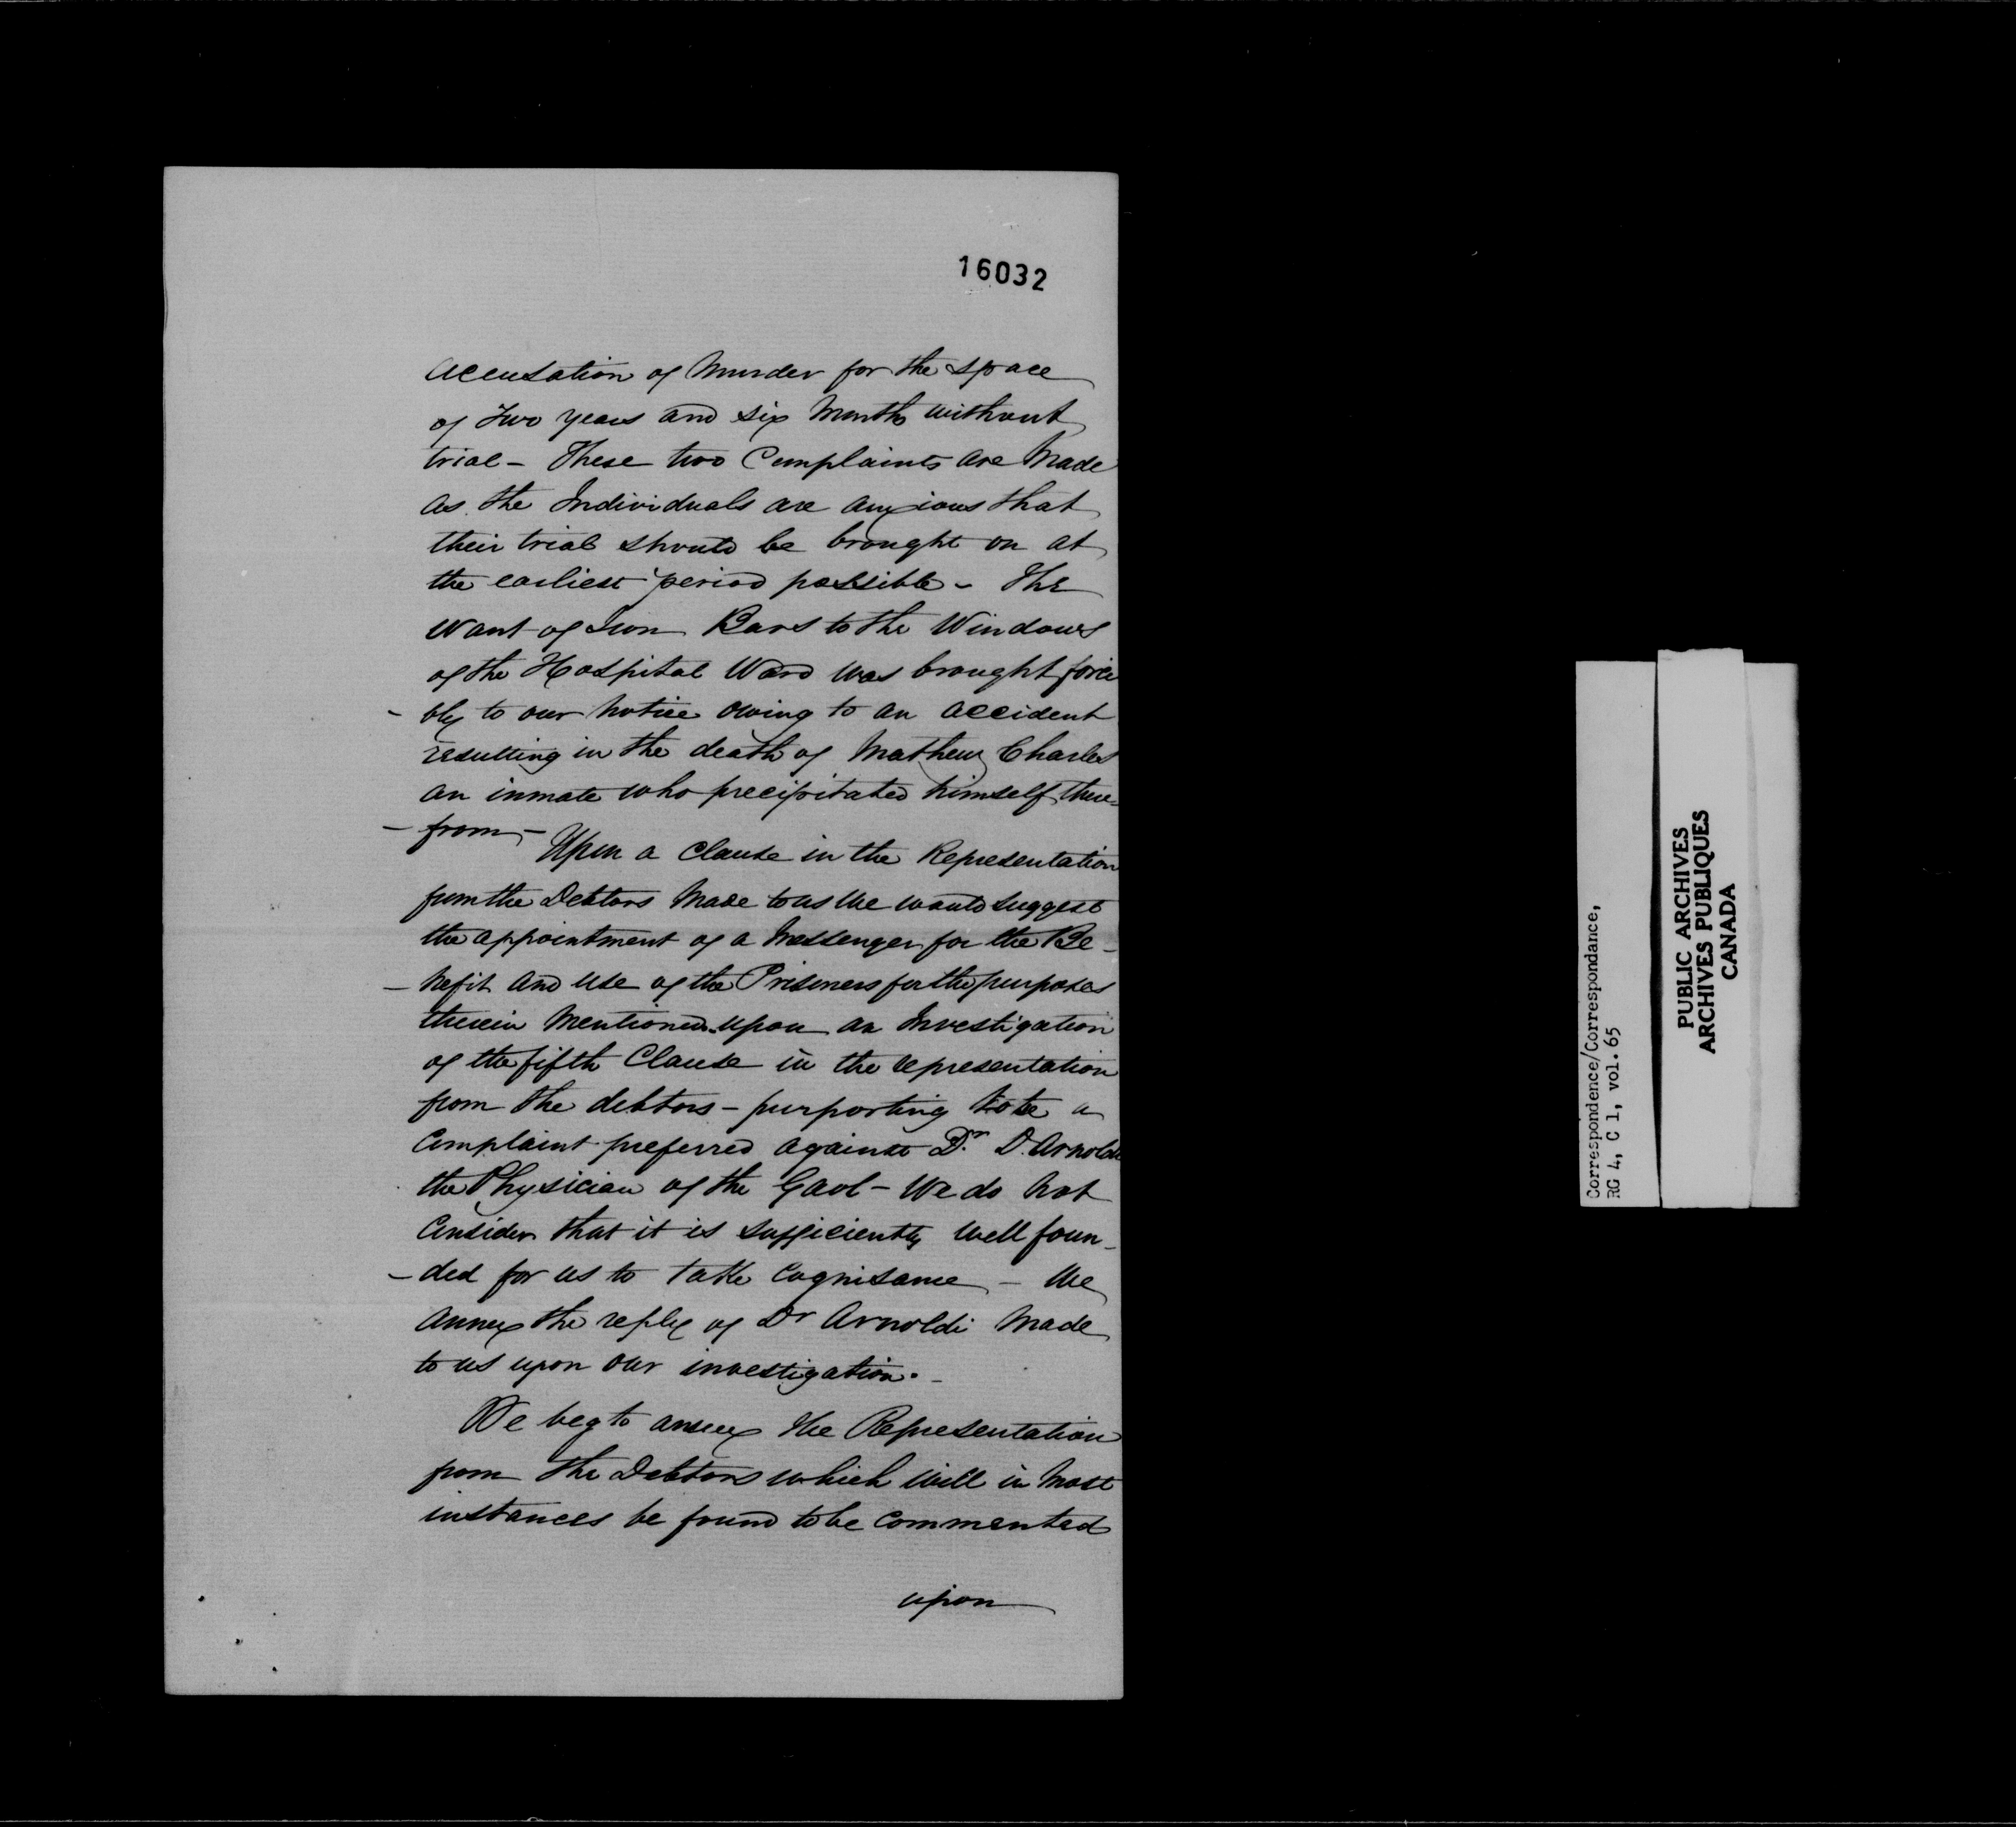 16032
accusation of Murder for the space
of Two years and six Months without
trial - These two Complaints are Made
as the Individuals are anxious that
their trial should be brought on at
the earliest period possible - The
Want of Iron Bars to the Windows
of the Hospital Ward was brought forci
- bly to our Notice owing to an accident
resulting in the death of Mathew Charles
an inmate who precipitated himself there-
- from -
Upon a Clause in the Representation
from the Debtors Made to us We would suggest
the appointment of a Messenger for the Be-
- nefit and Use of the Prisoners for the purposes
therein Mentioned upon an Investigation
of the fifth Clause in the representation
from the debtors - purporting to be a
Complaint preferred against Dr. D. Arnoldi
the Physician of the Gaol - We do Not
Consider that it is sufficiently Well foun-
- ded for us to take Cognisance - We
annex the reply of Dr Arnoldi Made
to us upon our investigation. -
We beg to annex the Representation
from the Debtors which Will in Most
instances be found to be Commented
upon
Correspondence/Correspondance,
RG 4, C 1, vol. 65
PUBLIC ARCHIVES
ARCHIVES PUBLIQUES
CANADA